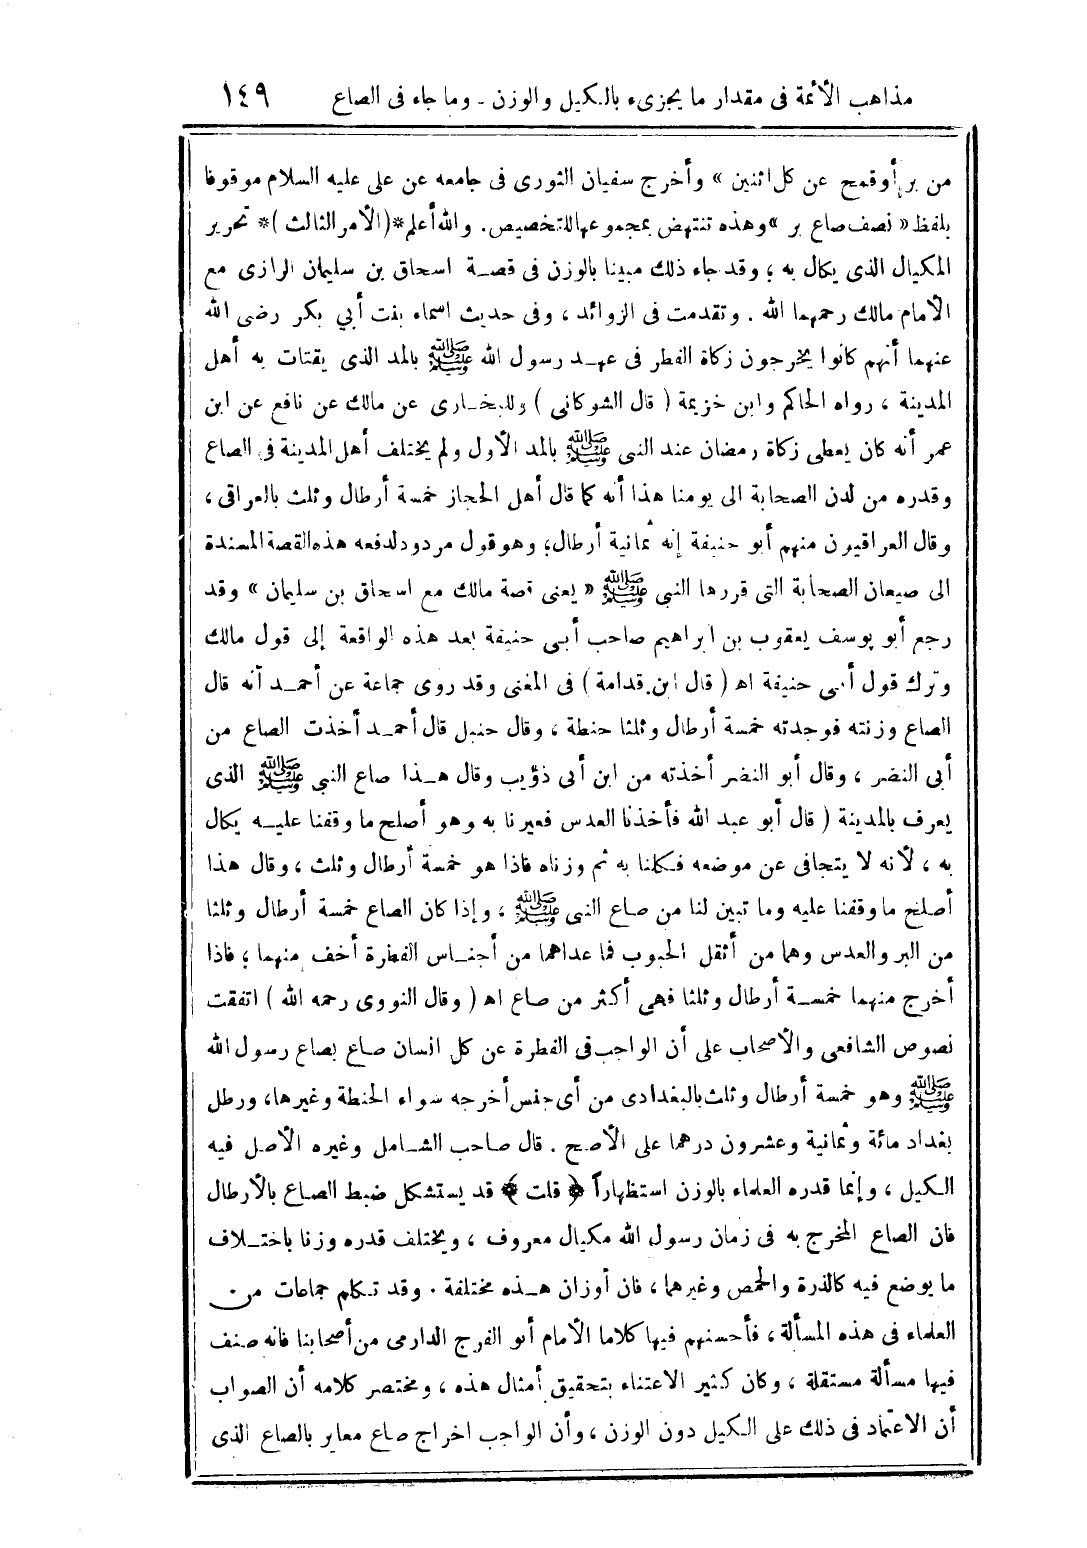 مذاهب الأئمة فى مقدار ما يجزىء بالكيل والوزن - وما جاء فى الصاع ١٤٩
من بر أوقمح عن كل اثنين » وأخرج سفيان الثورى فى جامعه عن على عليه السلام موقوفا
بلفظ « نصف صاع بر » وهذه تنتهض بمجموعها للتخصيص. والله أعلم *( الأمر الثالث )* تحرير
المكيال الذى يكال به ؛ وقد جاء ذلك مبينا بالوزن فى قصة اسحاق بن سليمان الرازى مع
الأمام مالك رحمهما الله . وتقدمت فى الزوائد ، وفى حديث اسماء بنت أبي بكر رضى الله
عنهما أنهم كانوا يخرجون زكاة الفطر فى عهد رسول الله ﷺ بالمد الذى يقتات به أهل
المدينة ، رواه الحاكم وابن خزيمة ( قال الشوكانى ) وللبخارى عن مالك عن نافع عن ابن
عمر أنه كان يعطى زكاة رمضان عند النبى ﷺ بالمد الأول ولم يختلف أهل المدينة فى الصاع
وقدره من لدن الصحابة الى يومنا هذا أنه كما قال أهل الحجاز خمسة أرطال وثلث بالعراقى ،
وقال العراقيون منهم أبو حنيفة إنه ثمانية أرطال؛ وهو قول مردود لدفعه هذه القصة المسندة
الى صيعان الصحابة التى قررها النبى ﷺ « يعنى قصة مالك مع اسحاق بن سليمان » وقد
رجع أبو يوسف يعقوب بن ابراهيم صاحب أبى حنيفة بعد هذه الواقعة إلى قول مالك
وترك قول أبى حنيفة اه ( قال ابن قدامة ) فى المغنى وقد روى جماعة عن أحمد أنه قال
الصاع وزنته فوجدته خمسة أرطال وثلثا حنطة ، وقال حنبل قال أحمد أخذت الصاع من
أبى النضر ، وقال أبو النضر أخذته من ابن أبى ذؤيب وقال هذا صاع النبى ﷺ الذى
يعرف بالمدينة ( قال أبو عبد الله فأخذنا العدس فعيرنا به وهو أصلح ما وقفنا عليه يكال
به ، لأنه لا يتجافى عن موضعه فكلنا به ثم وزناه فاذا هو خمسة أرطال وثلث ، وقال هذا
أصلح ماوقفنا عليه وما تبين لنا من صاع النبى ﷺ ، وإذا كان الصاع خمسة أرطال وثلثا
من البر والعدس وهما من أثقل الحبوب فما عداهما من أجناس الفطرة أخف منهما ؛ فاذا
أخرج منهما خمسة أرطال وثلثا فهى أكثر من صاع اه ( وقال النووى رحمه الله ) اتفقت
نصوص الشافعى والأصحاب على أن الواجب فى الفطرة عن كل انسان صاع بصاع رسول الله
ﷺ وهو خمسة أرطال وثلث بالبغدادى من أى جنس أخرجه سواء الحنطة وغيرها، ورطل
بغداد مائة وثمانية وعشرون درهما على الأصح . قال صاحب الشامل وغيره الأصل فيه
الكيل ، وإنما قدره العلماء بالوزن استظهاراً ﴿ قلت ﴾ قد يستشكل ضبط الصاع بالأرطال
فان الصاع المخرج به فى زمان رسول الله مكيال معروف ، ويختلف قدره وزنا باختلاف
ما يوضع فيه كالذرة والحمص وغيرهما ، فان أوزان هذه مختلفة . وقد تكلم جماعات من
العلماء فى هذه المسألة ، فأحسنهم فيها كلاما الأمام أبو الفرج الدارمى من أصحابنا فانه صنف
فيها مسألة مستقلة ، وكان كثير الاعتناء بتحقيق أمثال هذه ، ومختصر كلامه أن الصواب
أن الاعتماد فى ذلك على الكيل دون الوزن ، وأن الواجب اخراج صاع معاير بالصاع الذى